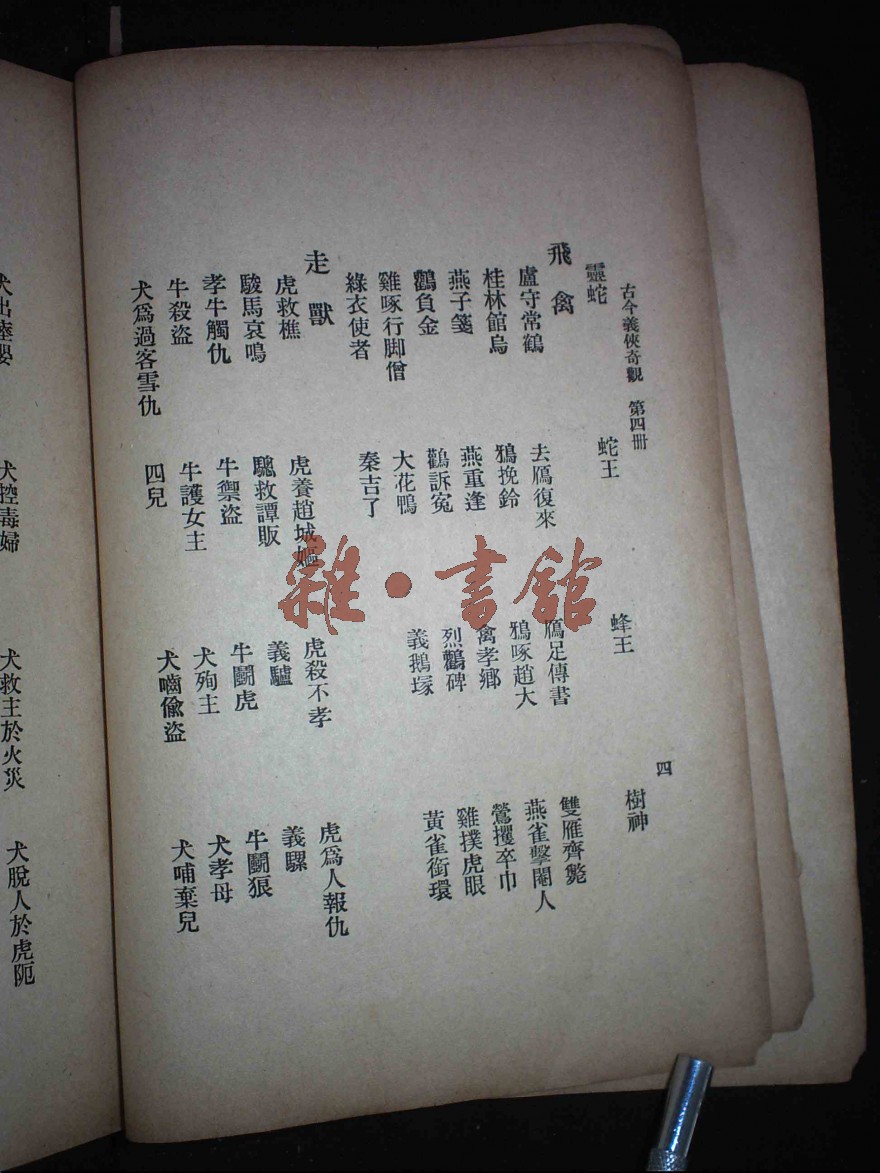 古今義俠奇觀 第四冊 四
靈蛇 蛇王 蜂王 樹神
飛禽
盧守常鶴 去鴈復來 鴈足傳書 雙雁齊斃
桂林館烏 鴉挽鈴 鴉啄趙大 燕雀擊閽人
燕子箋 燕重逢 禽孝鄉 鶯攫卒巾
鸛負金 鸛訴冤 烈鸛碑 雞撲虎眼
雞啄行脚僧 大花鴨 義鵝塚 黃雀銜環
綠衣使者 秦吉了
走獸
虎救樵 虎養趙城嫗 虎殺不孝 虎爲人報仇
駿馬哀鳴 救譚販 義驢 義騾
孝牛觸仇 牛禦盜 牛鬭虎 牛鬭狼
牛殺盜 牛護女主 犬殉主 犬孝母
犬爲過客雪仇 四兒 犬嚙偸盜 犬哺棄兒
犬控毒婦 犬救主於火災 犬脫人於虎阨
雜·書館